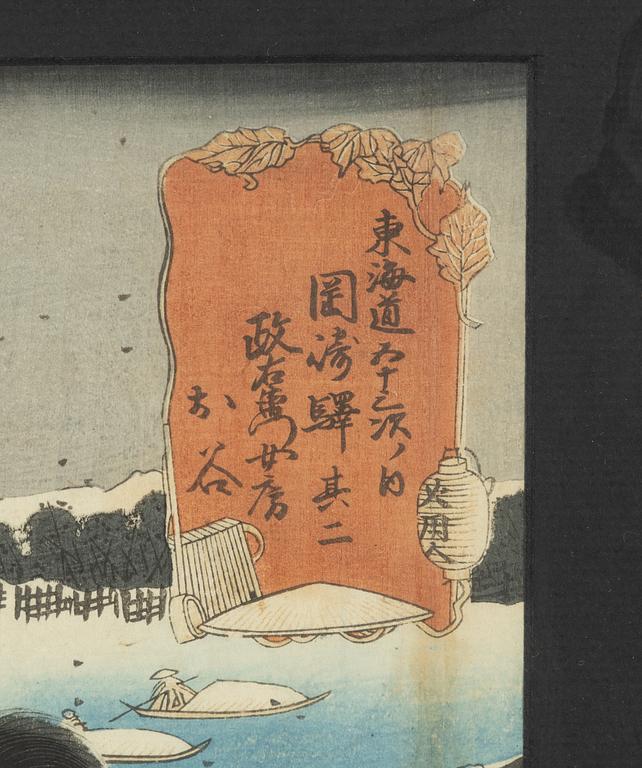 東海道五十三次ノ内
岡崎驛 其二
政右衛門女房
お谷
火用心